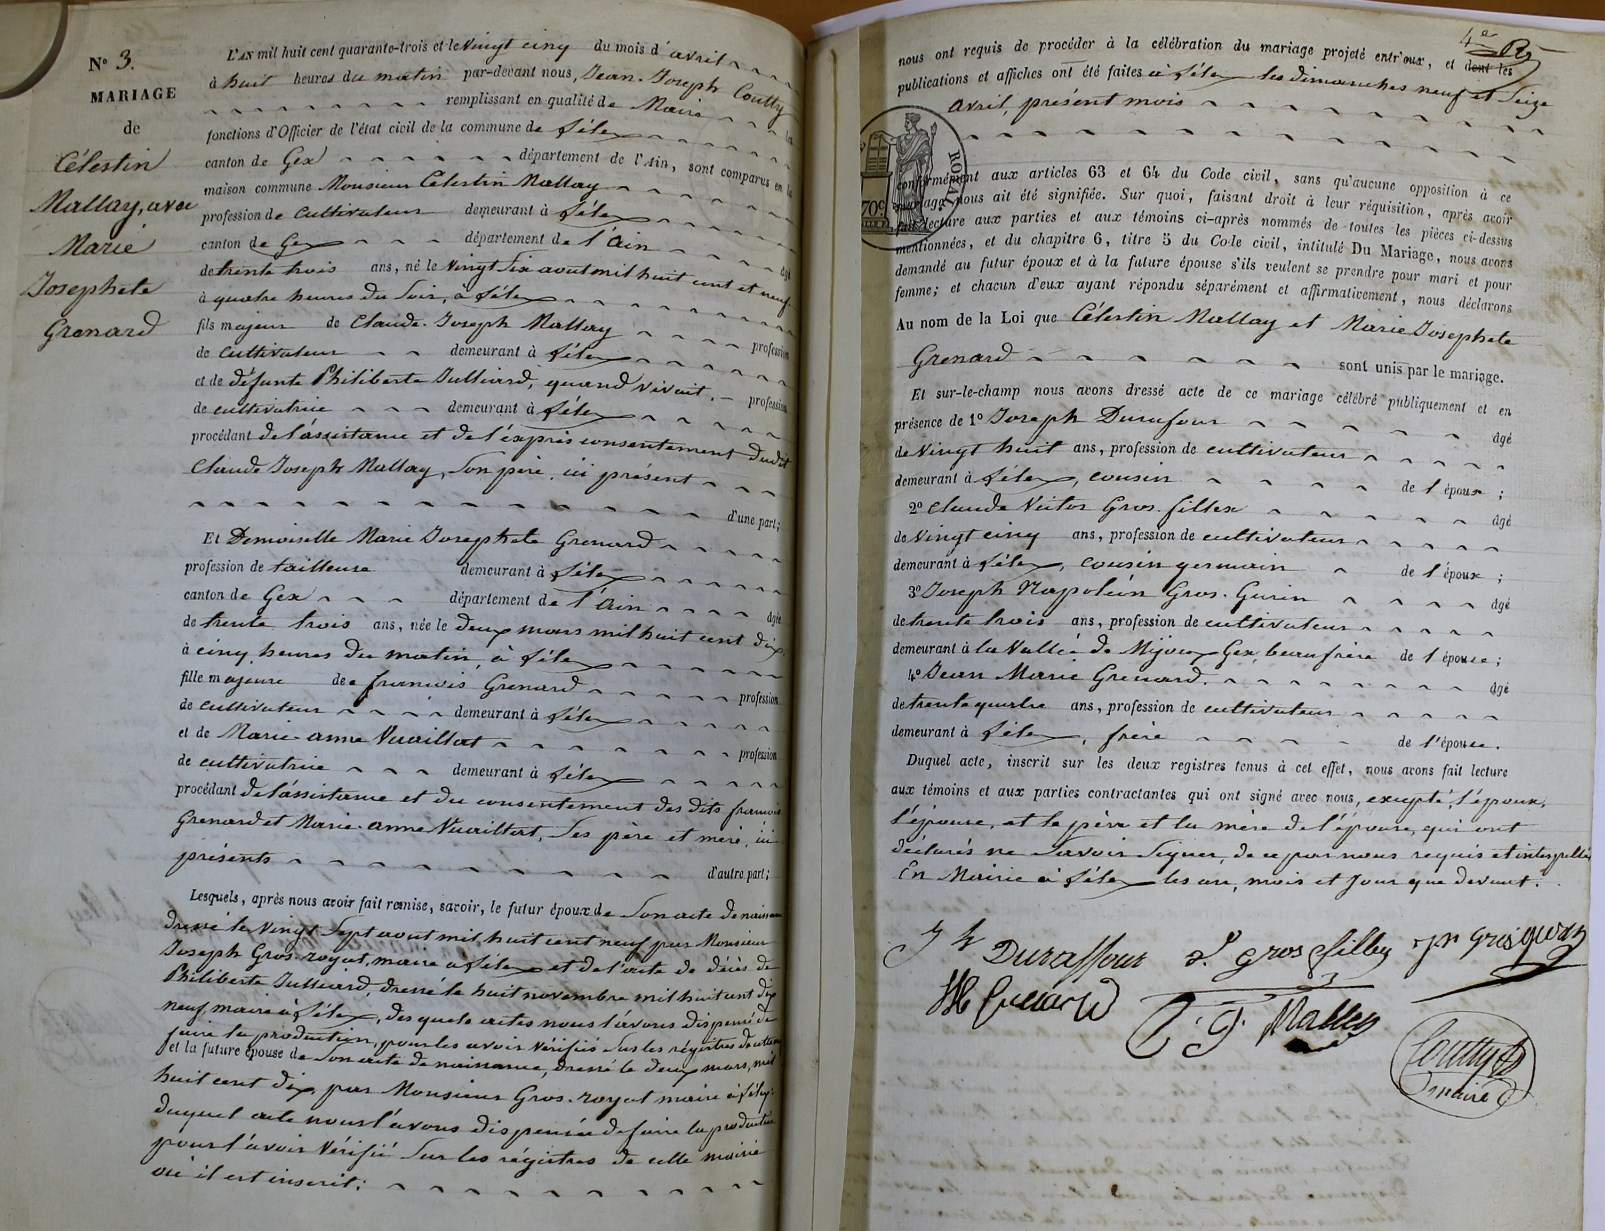 N° 3.
MARIAGE
de
Célestin
Mallay, avec
Marie
Josephete
Grenard
L'AN mil huit cent quarante-trois et le vingt cinq du mois d'avril
à huit heures du matin par-devant nous, Jean-Joseph Coutty
remplissant en qualité de Maire la
fonctions d'Officier de l'état civil de la commune de Lélex
canton de Gex département de l'Ain, sont comparus en la
maison commune Monsieur Célestin Mallay
profession de cultivateur demeurant à Lélex
canton de Gex département de l'Ain âgé
de trente trois ans, né le vingt six aout mil huit cent et neuf
à quatre heures du soir, à Lélex
fils majeur de Claude-Joseph Mallay profession
de cultivateur demeurant à Lélex
et de défunte Philiberte Julliard, quand vivait, profession
de cultivatrice demeurant à Lélex
procédant de l'assistance et de l'éxprès consentement dudit
Claude Joseph Mallay, son père, ici présent
d'une part;
Et Demoiselle Marie Josephete Grenard
profession de tailleuse demeurant à Lélex
canton de Gex département de l'Ain âgée
de trente trois ans, née le deux mars mil huit cent dix,
à cinq heures du matin, à Lélex
fille majeure de françois Grenard profession
de cultivateur demeurant à Lélex
et de Marie-anne Vuaillat profession
de cultivatrice demeurant à Lélex
procédant de l'assistance et du consentement des dits françois
Grenard et Marie-anne Vuaillat, ses père et mère, ici
présents d'autre part;
Lesquels, après nous avoir fait remise, savoir, le futur époux de son acte de naissance
dressé le vingt sept aout mil huit cent neuf par Monsieur
Joseph Gros-royat, maire à Lélex et de l'acte de décès de
Philiberte Julliard, dressé le huit novembre mil huit cent dix
neuf, mairie à Lélex, desquels actes nous l'avons dispensé de
faire la production, pour les avoir vérifiés sur les régistres de cette
et la future épouse de son acte de naissance, dressé le deux mars, mil
huit cent dix, par Monsieur Gros-royat maire à Lélex,
duquel acte nous l'avons dispensée de faire la production
pour l'avoir vérifié sur les régistres de cette mairie
où il est inscrit;
4e
nous ont requis de procéder à la célébration du mariage projeté entr'eux, et dont les
publications et affiches ont été faites à Lélex les dimanches neuf et seize
avril, présent mois
conformément aux articles 63 et 64 du Code civil, sans qu'aucune opposition à ce
mariage nous ait été signifiée. Sur quoi, faisant droit à leur réquisition, après avoir
fait lecture aux parties et aux témoins ci-après nommés de toutes les pièces ci-dessus
mentionnées, et du chapitre 6, titre 5 du Code civil, intitulé Du Mariage, nous avons
demandé au futur époux et à la future épouse s'ils veulent se prendre pour mari et pour
femme; et chacun d'eux ayant répondu séparément et affirmativement, nous déclarons
Au nom de la Loi que Célestin Mallay et Marie Josephete
Grenard sont unis par le mariage.
Et sur-le-champ nous avons dressé acte de ce mariage célébré publiquement et en
présence de 1° Joseph Durafour âgé
de vingt huit ans, profession de cultivateur
demeurant à Lélex, cousin de l'époux;
2° Claude Victor Gros-fillex âgé
de vingt cinq ans, profession de cultivateur
demeurant à Lélex, cousin germain de l'époux;
3° Joseph Napoléon Gros-Gurin âgé
de trente trois ans, profession de cultivateur
demeurant à la Vallée de Mijoux, Gex, beaufrère de l'épouse;
4° Jean Marie Grenard. âgé
de trente quatre ans, profession de cultivateur
demeurant à Lélex, frère de l'épouse.
Duquel acte, inscrit sur les deux registres tenus à cet effet, nous avons fait lecture
aux témoins et aux parties contractantes qui ont signé avec nous, excepté l'époux,
l'épouse, et le père et la mère de l'épouse, qui ont
déclarés ne savoir signer, de ce par nous requis et interpellés
En Mairie à Lélex les an, mois et jour que devant.
Jh Duraffour v. gros filley jn gros gurin
JM Grenard C. J. Malley
Coutty
maire
70c
ROYAL